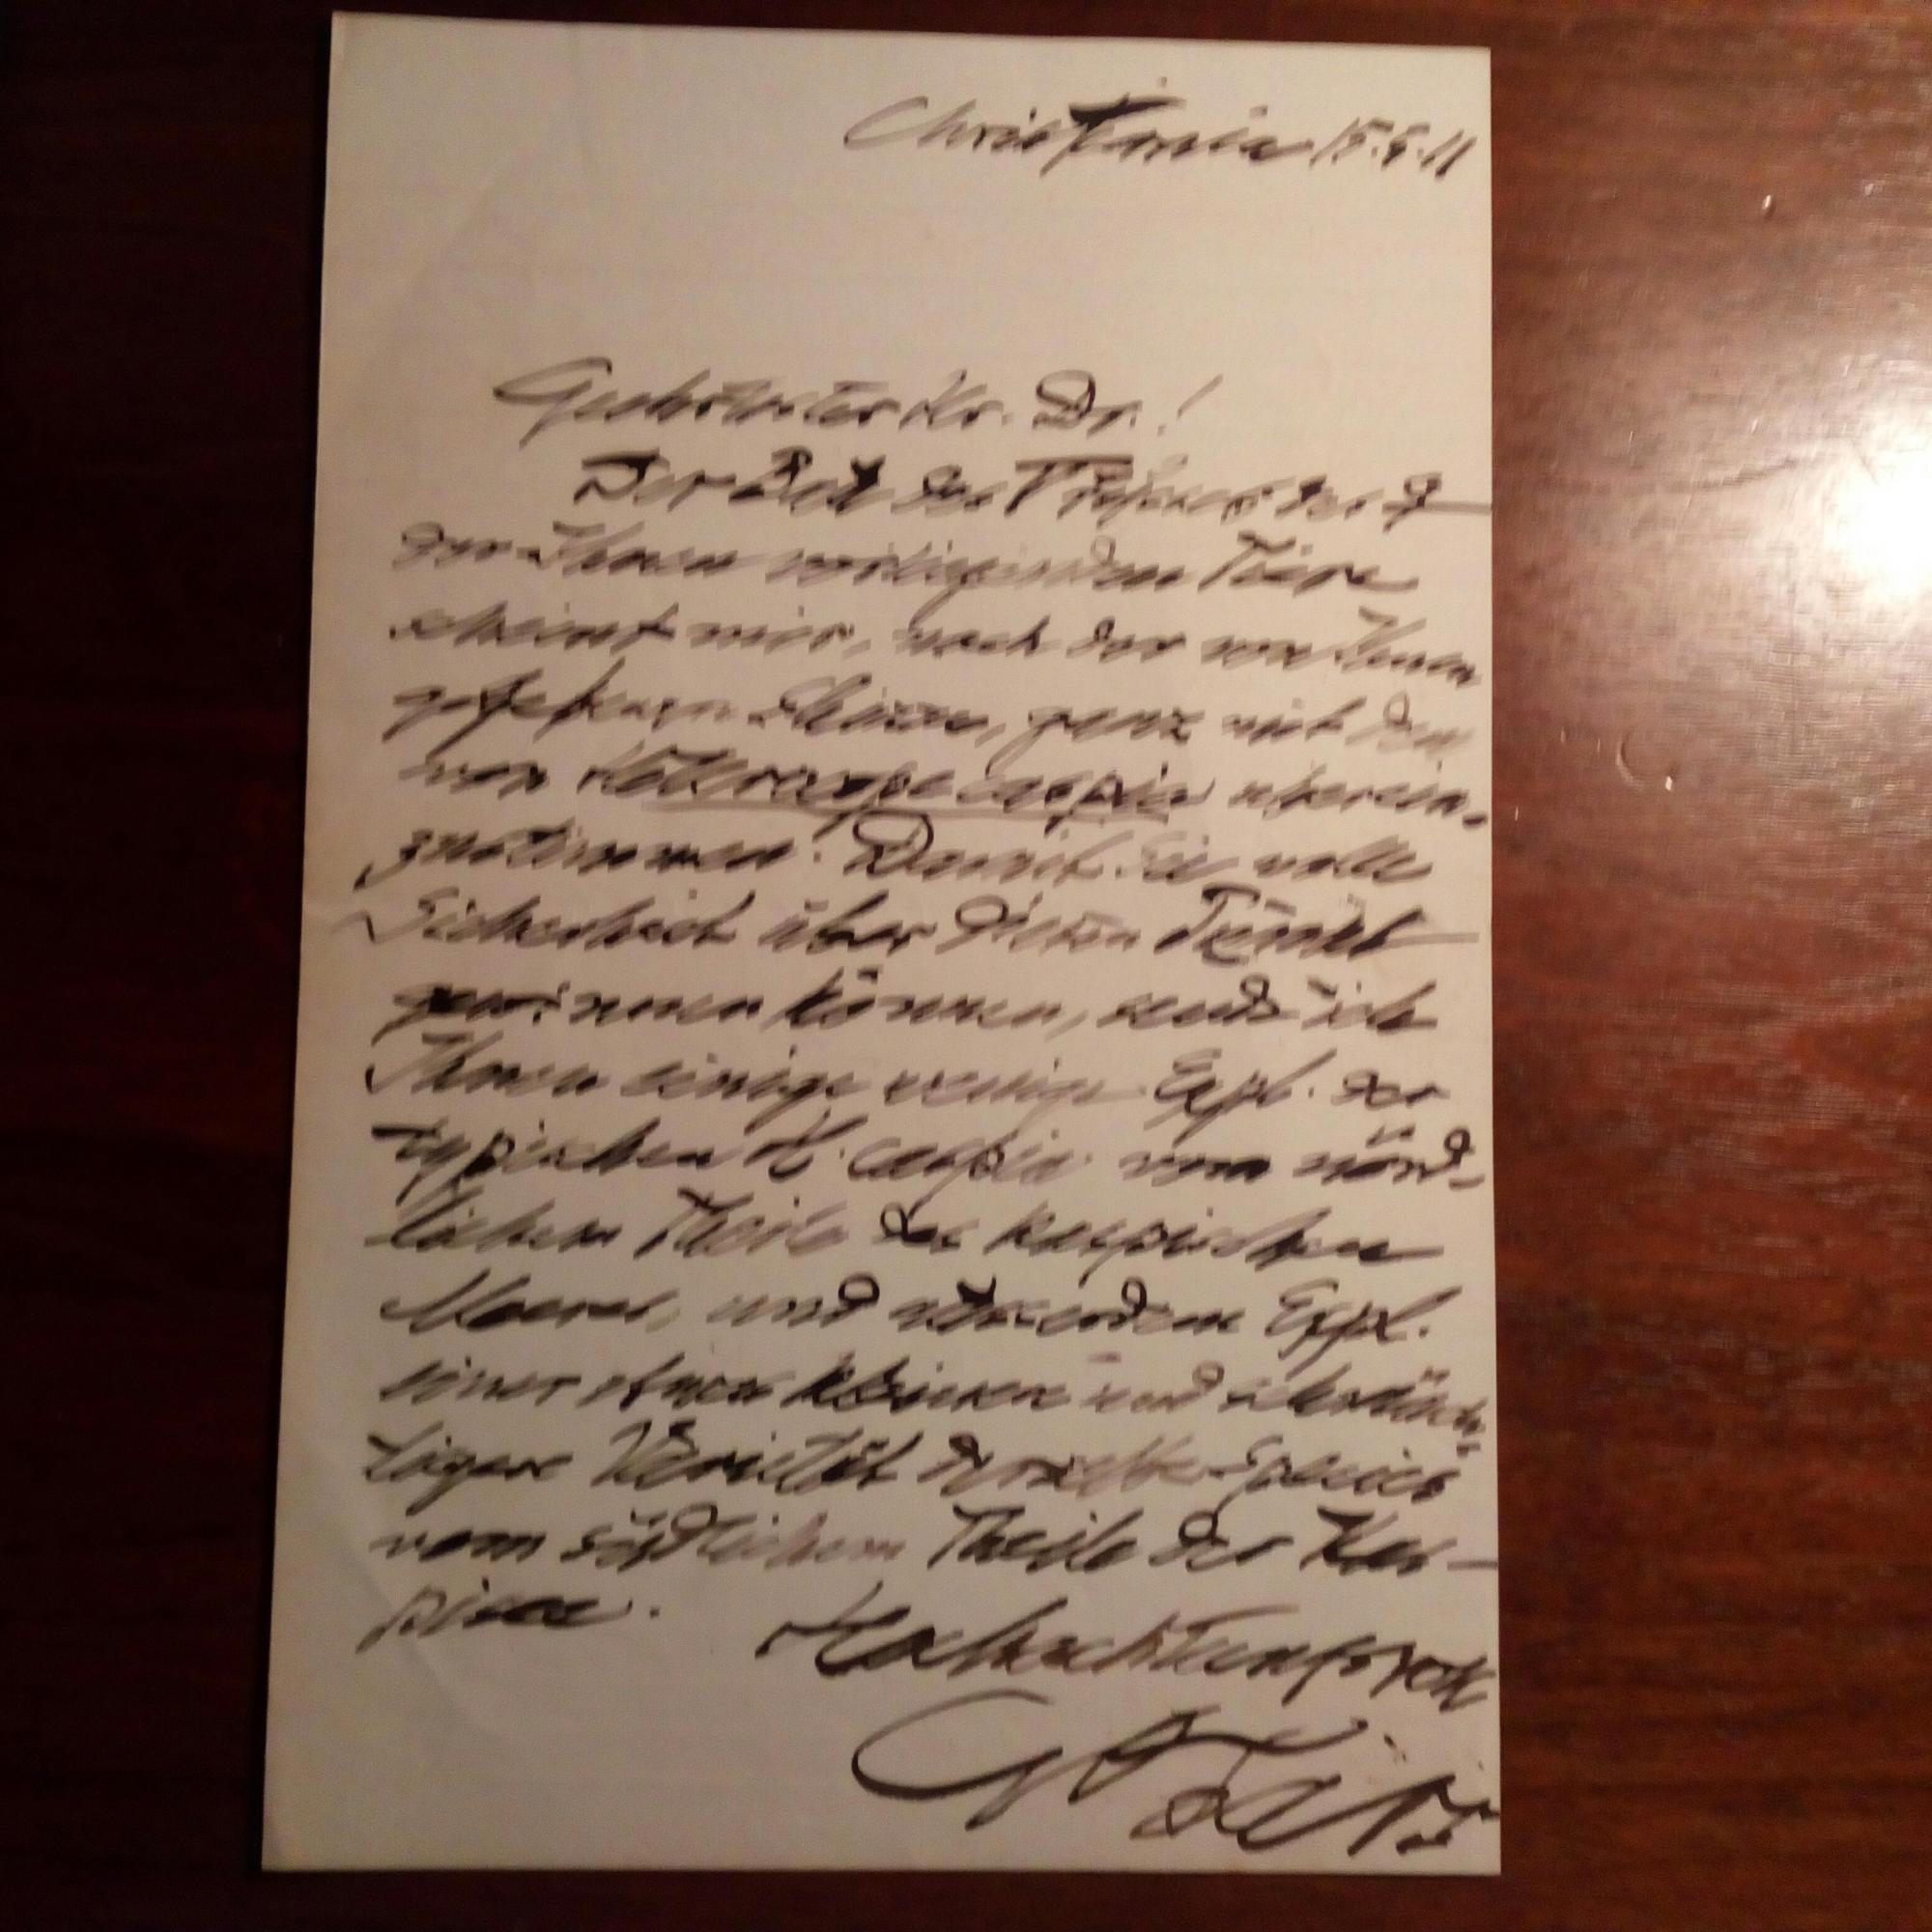 Christiania 15.5.11
Geehrtester Hr. Dr.!
Der Bau des
der Ihnen vorliegenden Tiere
scheint mir, nach der von Ihnen
gegebenen Skizze, ganz mit dem
von Heterocope caspia überein-
zustimmen. Damit Sie volle
Sicherheit über diesen Punkt
gewinnen können, sende ich
Ihnen einige wenige Expl. der
typischen H. caspia vom nörd-
lichen Theile des kaspischen
Meeres, und ausserdem Expl.
einer etwas kleineren und schmäch-
tigere Varietät derselben Species
vom südlichen Theile der Kas-
pisee.
Hochachtungsvoll
G O Sars